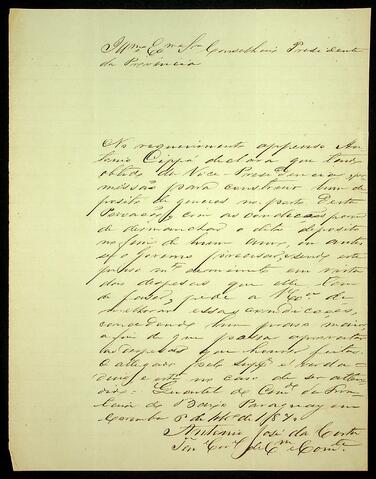 Illmo Exmo Snr Conselheiro Presidente
da Provincia
No requerimento appenso An
tonio declara que tendo
obtido da Vice Presidencia per
missão para construir hum de
posito de generos no porto desta
Povoação, com as condições
de desmanchar o dito deposito
no fim de hum anno, ou antes
se o Governo precisar, sendo este
praso mto deminuto em vista
das despesas que elle tem
de fazer, pede a V. Exca de
melhorar essas condicções,
concedendo hum praso maior
afim de que possa aproveitar
as despesas que houver feitas.
O allegado pelo suppe é verda
deiro e no caso de ser atten
dido. Quartel do Comdo da Fron
teira do Baixo Paraguay em
Corumbá 8 de de 187
Antonio José da Costa
Ten Corel Come